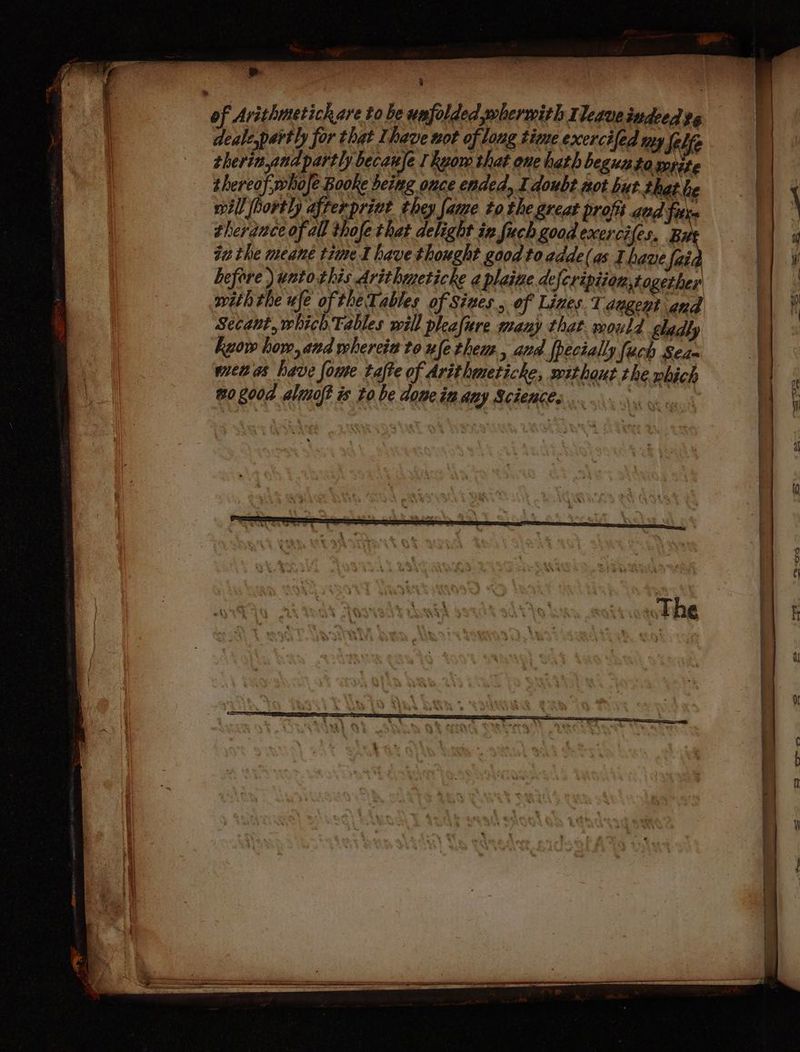 of Arithmetick are to be unfolded, wherwith I leave indeed to
deale, partly for that I have not of long time exercised my selfe
therin, and partly because I know that one hath begun to write
thereof, whose Booke being once ended, I doubt not but that he
will shortly after print they same to the great profit and fur-
therance of all those that delight in such good exercises. But
in the meane time I have thought good to adde (as I have said
before) unto this Arithmeticke a plaine description, together
with the use of the Tables of Sines, of Lines Tangent and
Secant, which Tables will pleasure many that would gladly
know how, and wherein to use them, and specially such Sea-
men as have some taste of Arithmeticke, without the which
no good almost is to be done in any Sciences.
The